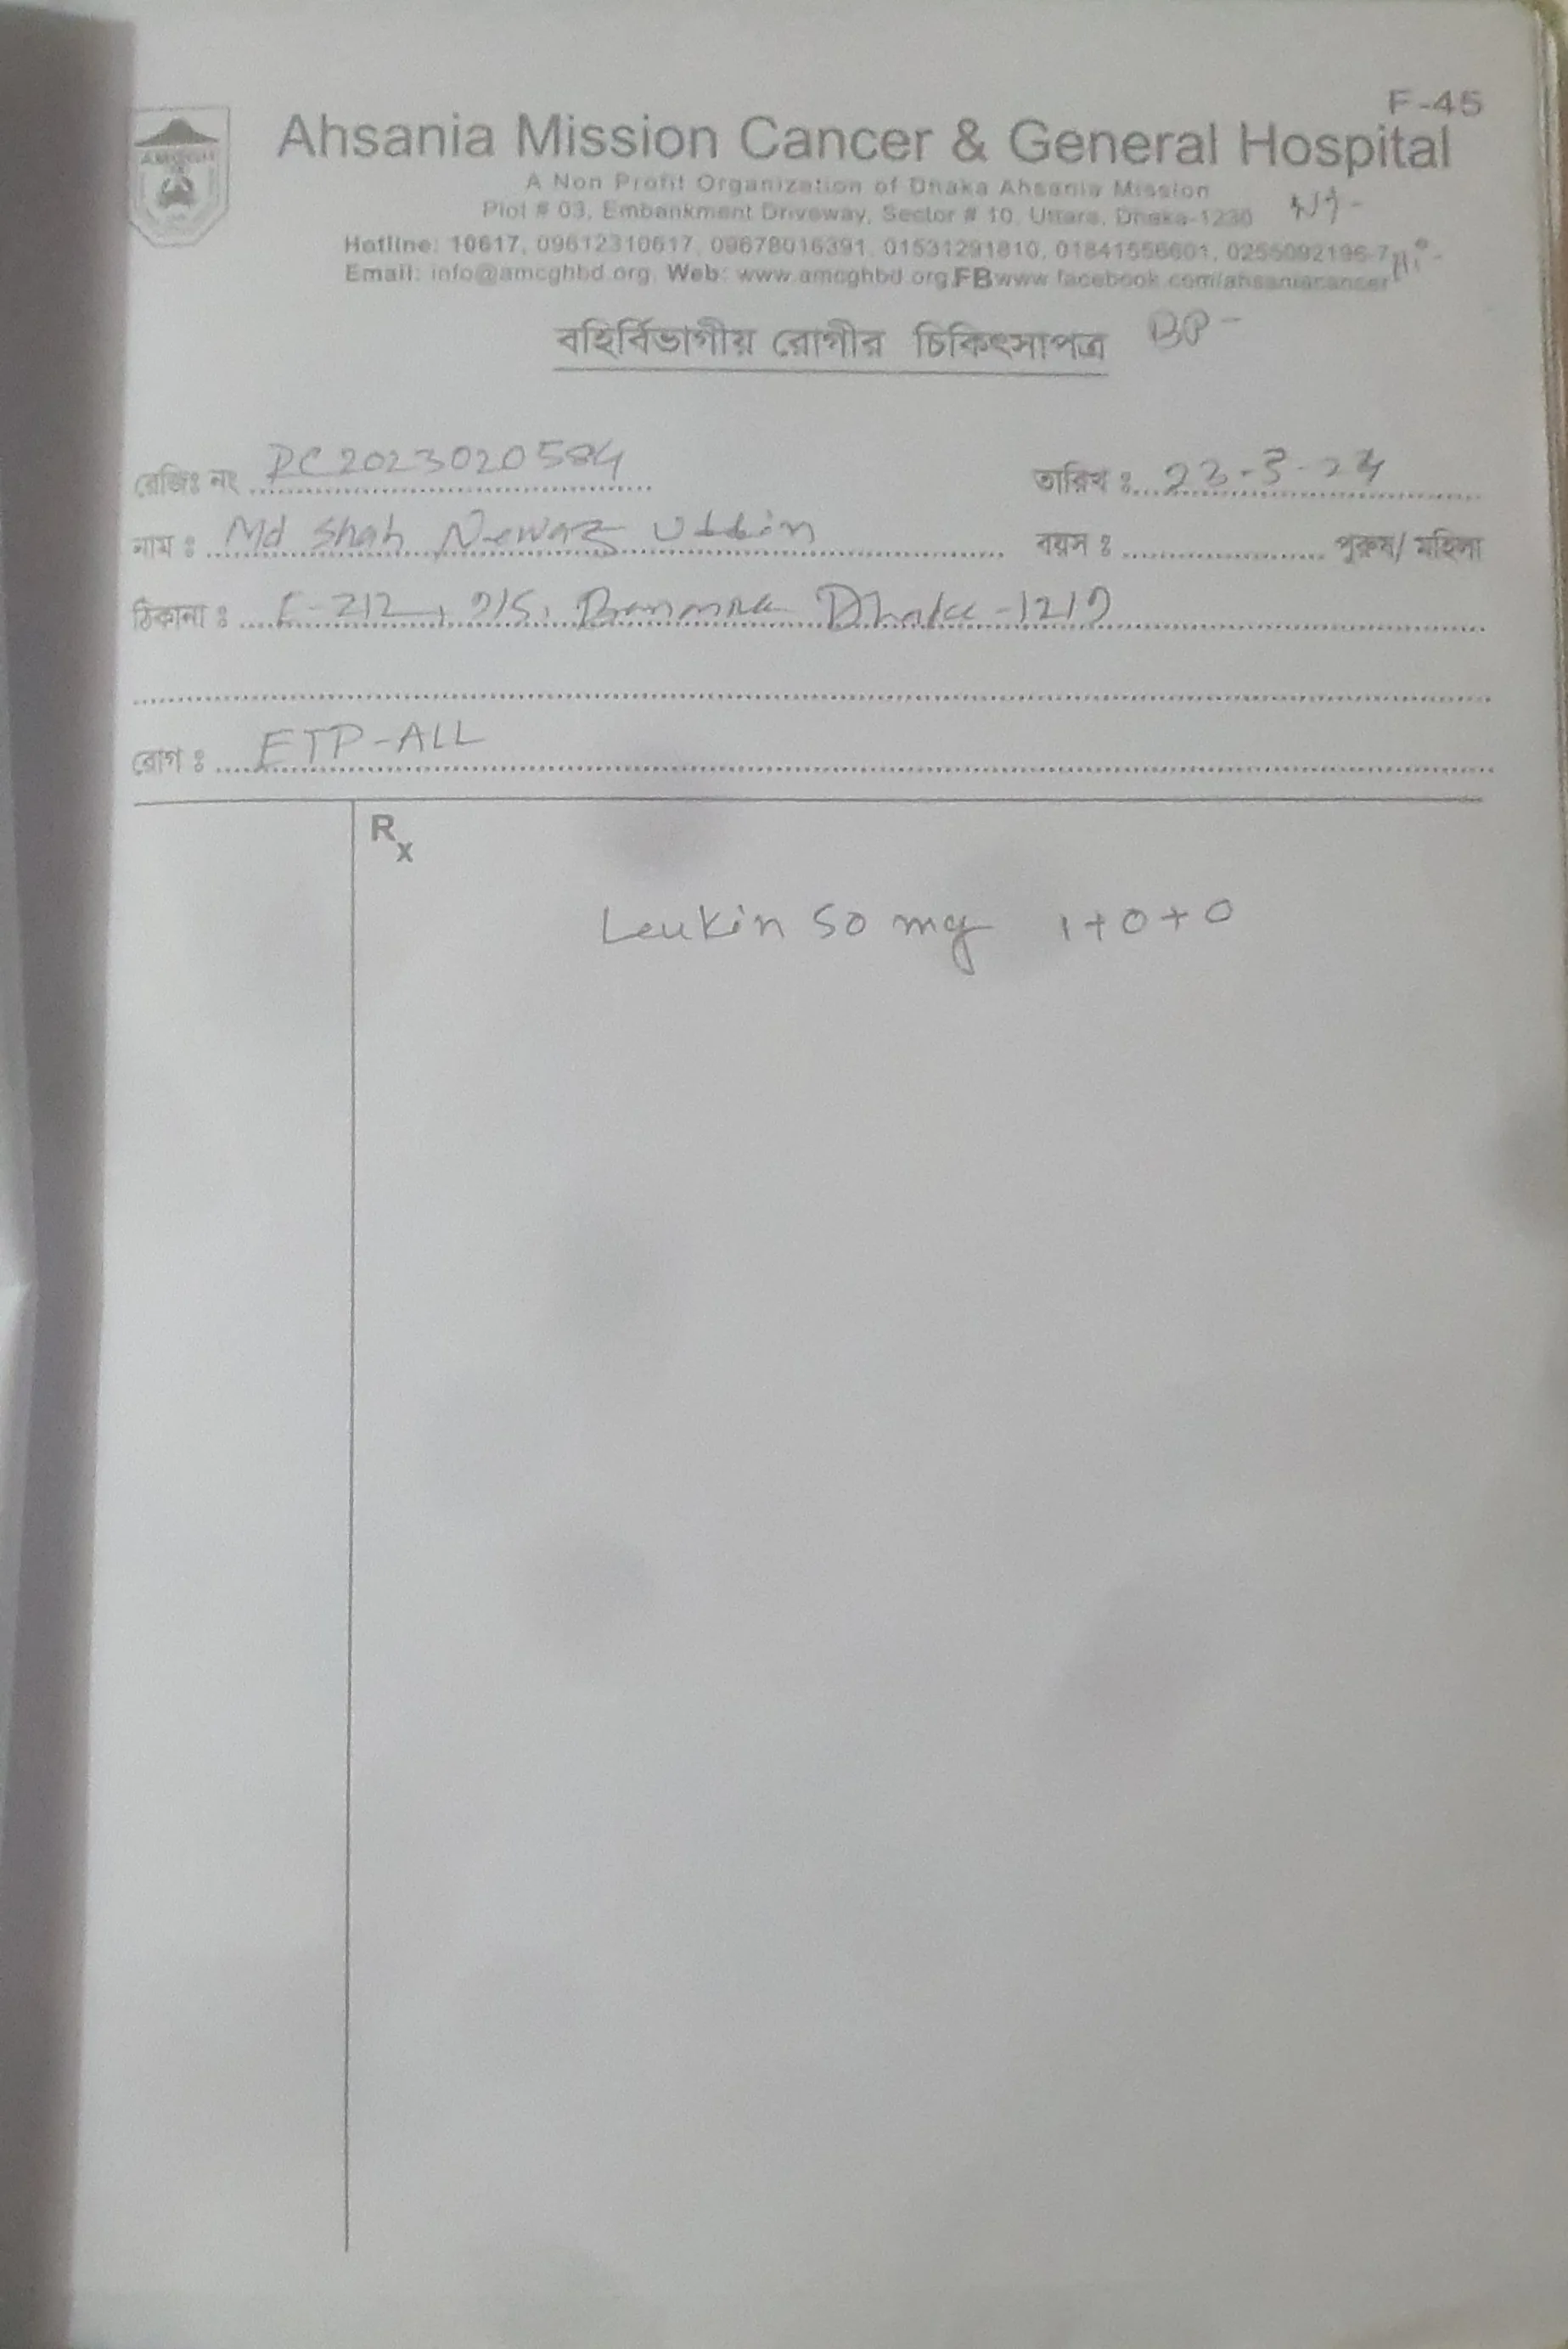 F-45
Ahsania Mission Cancer & General Hospital
A Non Profit Organization of Dhaka Ahsania Mission
Plot # 03, Embankment Driveway, Sector # 10, Uttara, Dhaka-1230
Hotline: 10617, 09612310617, 09678016391, 01531291810, 01841556601, 0255092196-7
Email: info@amcghbd.org, Web: www.amcghbd.org,FBwww.facebook.com/ahsaniacancer
বহির্বিভাগীয় রোগীর চিকিৎসাপত্র BP-
রেজিঃ নং 2023020584 তারিখ ঃ 23-3-24
নাম ঃ Md Shah Newaz Uddin বয়স ঃ পুরুষ/ মহিলা
ঠিকানা ঃ Dhaka-1219
রোগ ঃ ETP-ALL
Rx
Leukin 50 mg 1+0+0